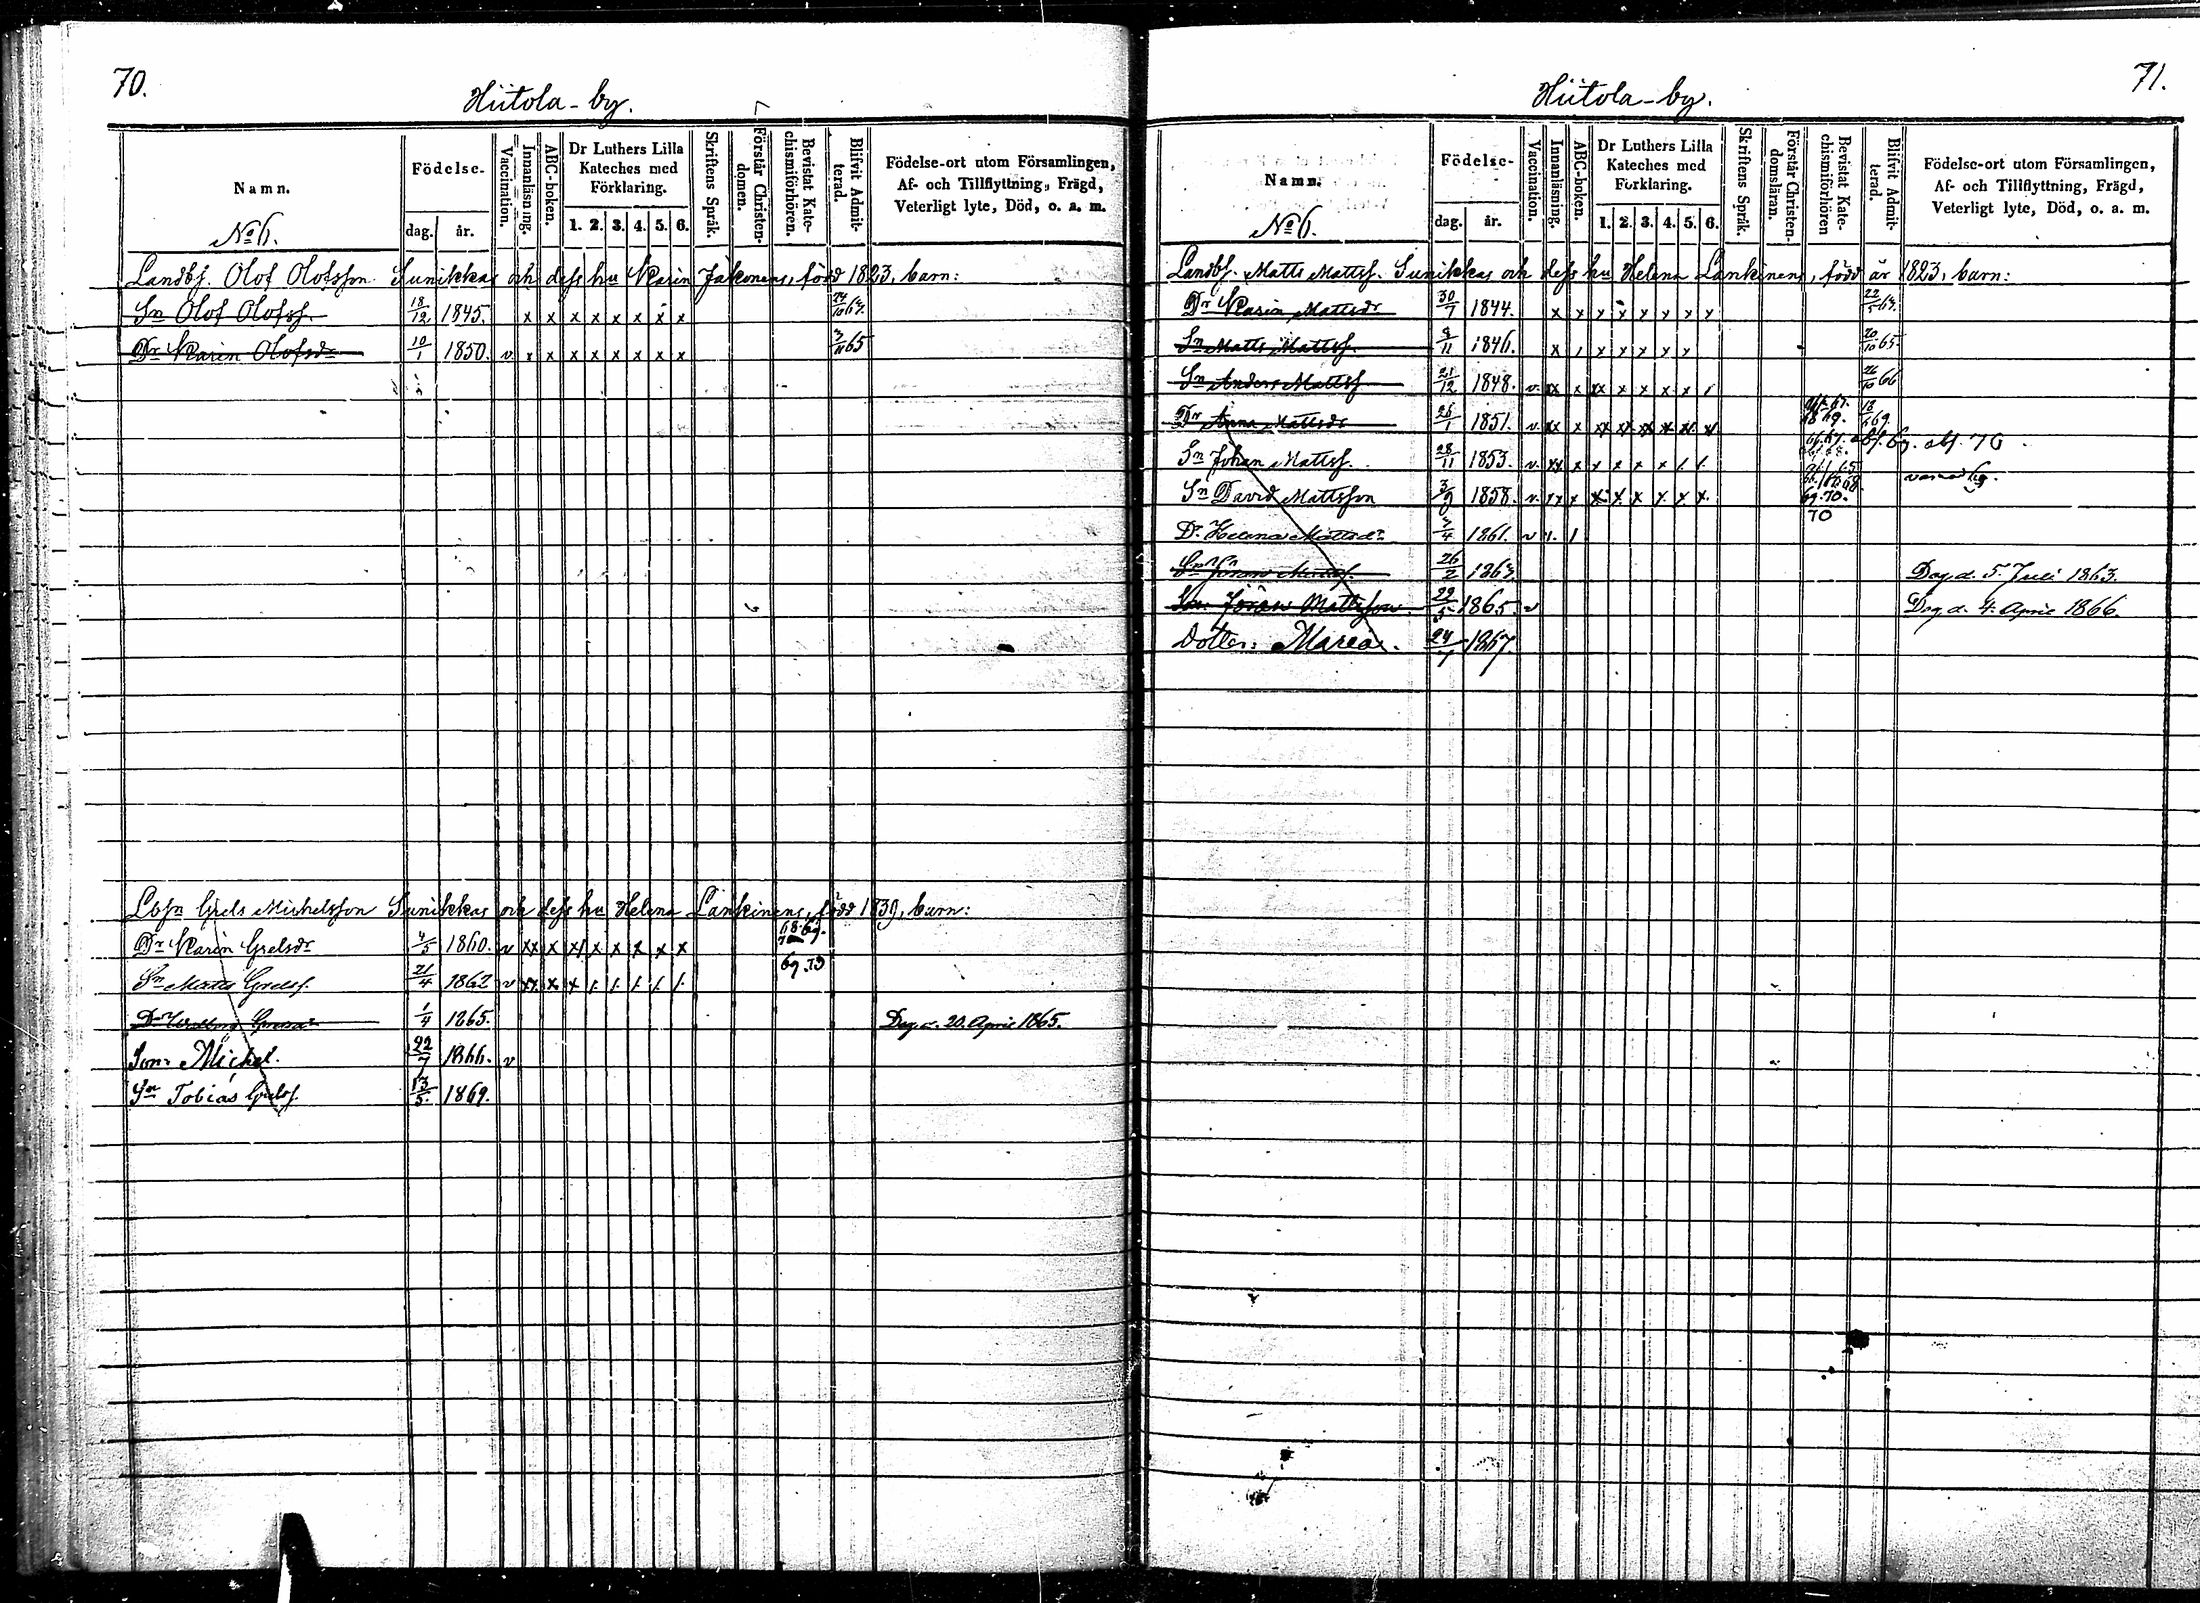 70.
Hiitola-by.
Namn.
No 6.
Födelse-
dag. år.
Vaccination.
Innanläsning.
ABC-boken.
Dr Luthers Lilla Kateches med Förklaring.
1. 2. 3. 4. 5. 6.
Skriftens Språk.
Förstår Christen-domen.
Bevistat Kate-chismiförhören.
Blifvit Admit-terad.
Födelse-ort utom Församlingen,
Af- och Tillflyttning, Frägd,
Veterligt lyte, Död, o. a. m.
Landbf. Olof Olofsson Sunikkas och dess hu Karin Jäkonens, född 1823, barn:
Sn Olof Olofss. 18/12 1845. x x x x x x x x
Dr Karin Olofsdr 10/1 1850. v x x x x x x x x 65
Lbfn Grels Michelsson Sunikkas och dess hu Helena Lankinens, född 1839, barn:
Dr Karin Grelsdr 4/5 1860. v xx x x x x x x 68.69. 70
Sn Grelss. 21/4 1862 v 69.70
Dr 1/4 1865. Dog d. 20. April 1865.
Son: Michel. 22/7 1866. v
Sn Tobias Grelss. 13/5. 1869.
71.
Hiitola-by.
Namn.
No 6.
Födelse-
dag. år.
Vaccination.
Innanläsning.
ABC-boken.
Dr Luthers Lilla Kateches med Förklaring.
1. 2. 3. 4. 5. 6.
Skriftens Språk.
Förstår Christen-domsläran.
Bevistat Kate-chismiförhören
Blifvit Admit-terad.
Födelse-ort utom Församlingen,
Af- och Tillflyttning, Frägd,
Veterligt lyte, Död, o. a. m.
Landbf. Matts Mattss. Sunikkas och dess hu Helena Lankinens, född år 1823, barn:
Dr Karin Mattsdr 30/7 1844. x x x x x x x x
Sn Matts Mattss. 8/11 1846. x x x x x x 20/10 65.
Sn Anders Mattss 21/12 1848. v. xx x xx x x x x 26/10 66
Dr Anna Mattsdr 26/1 1851. v. xx x xx xx xx x x x 68 69. 69.
Sn Johan Mattss. 28/11 1853. v. xx x x x x x abs. 70
Sn David Mattsson 3/9 1858. v. x x x x x x x x 69.70.
Dr Helena Mattsdr 3/4 1861. v 70
Sn Jöran Mattss. 26/2 1863. Dog d. 5. Juli 1863.
Son. Jöran Mattsson 29/5 1865. v Dog d. 4. April 1866.
Dotter: Maria. 24/7 1867